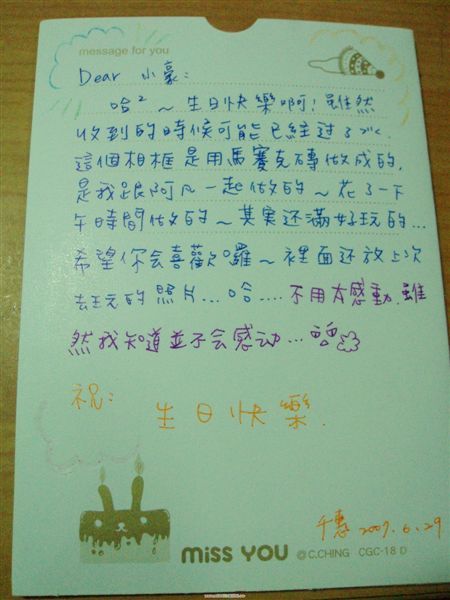 message for you
Dear 小豪：
哈²～生日快樂啊！雖然
收到的時候可能已經過了ㄨ
這個相框是用馬賽克磚做成的,
是我跟阿凡一起做的～花了一下
午時間做的～其實还滿好玩的...
希望你会喜歡囉～裡面还放上次
去玩的照片...哈....不用太感動.雖
然我知道並不会感动...
祝：
生日快樂.
千惠 2007.6.29
miss YOU @C.CHING CGC-18 D